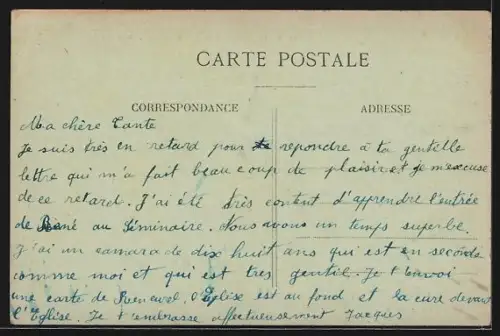 CARTE POSTALE
CORRESPONDANCE
ADRESSE
Ma chère Tante
Je suis très en retard pour repondre à ta gentille
lettre qui m'a fait beaucoup de plaisir et je m'excuse
de ce retard. J'ai été très content d'apprendre l'entrée
de René au Séminaire. Nous avons un temps superbe.
J'ai un camarade dix huit ans qui est en seconde
comme moi et qui est très gentil. Je t'envoi
une carte de l'Eglise est au fond et la cure devant
l'Eglise. Je t'embrasse affectueusement Jacques